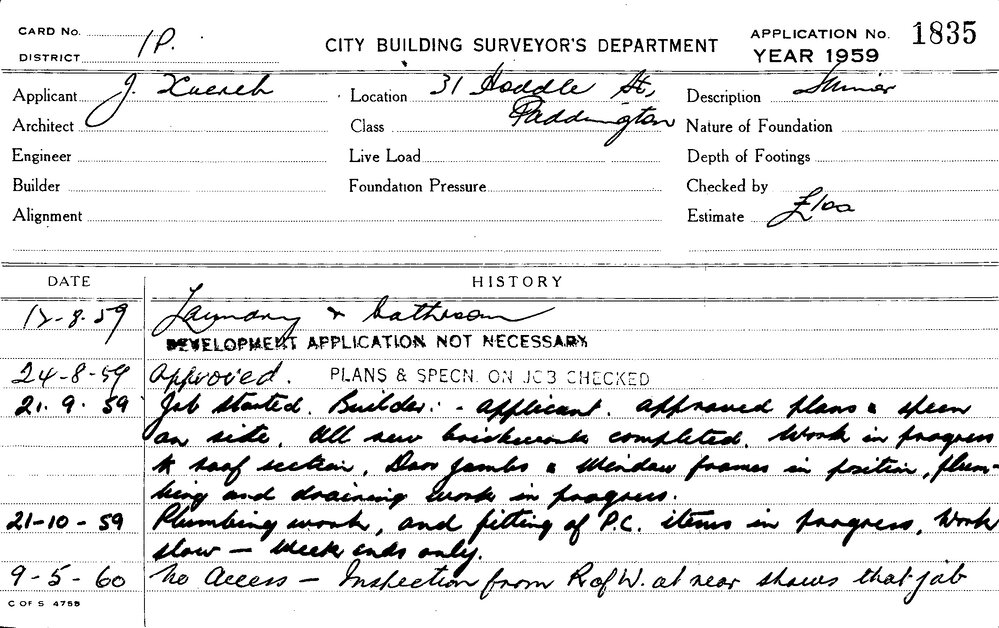 CARD No.
1P.
DISTRICT
CITY BUILDING SURVEYOR'S DEPARTMENT
APPLICATION No. 1835
YEAR 1959
Applicant J. Xuereb
Location 31 Hoddle St,
Paddington
Description
Architect
Class
Nature of Foundation
Engineer
Live Load
Depth of Footings
Builder
Foundation Pressure
Checked by
Alignment
Estimate £100
DATE HISTORY
-8-59 Laundry & bathroom
DEVELOPMENT APPLICATION NOT NECESSARY
24-8-59 Approved. PLANS & SPECN. ON JOB CHECKED
21.9.59 Job started. Builder:- applicant. approved plans & specn
on site. All new brickwork completed. Work in progress
roof section, Door jambs & Window frames in position, plum-
bing and draining work in progress.
21-10-59 Plumbing work, and fitting of P.C. items in progress, Work
slow — Week ends only.
9-5-60 No Access — Inspection from R of W. at rear shows that job
C OF S 4755